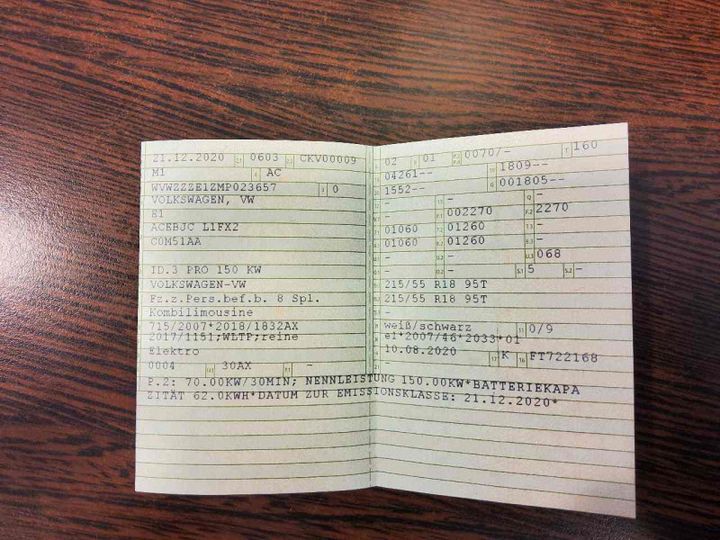 21.12.2020 0603 CKV00009
M1 AC
WVWZZZE1ZMP023657 0
VOLKSWAGEN, VW
E1
ACEBJC L1FX2
C0M51AA
ID.3 PRO 150 KW
VOLKSWAGEN-VW
Fz.z.Pers.bef.b. 8 Spl.
Kombilimousine
715/2007*2018/1832AX
2017/1151;WLTP;reine
Elektro
0004 30AX -
02 01 0070/- 160
04261-- 1809--
1552-- 001805--
- - -
- 002270 2270
01060 01260 -
01060 01260 -
- - 068
- - 5 -
215/55 R18 95T
215/55 R18 95T
-
weiß/schwarz 0/9
e1*2007/46*2033*01
10.08.2020 K FT722168
P.2: 70.00KW/30MIN; NENNLEISTUNG 150.00KW*BATTERIEKAPA
ZITÄT 62.0KWH*DATUM ZUR EMISSIONSKLASSE: 21.12.2020*